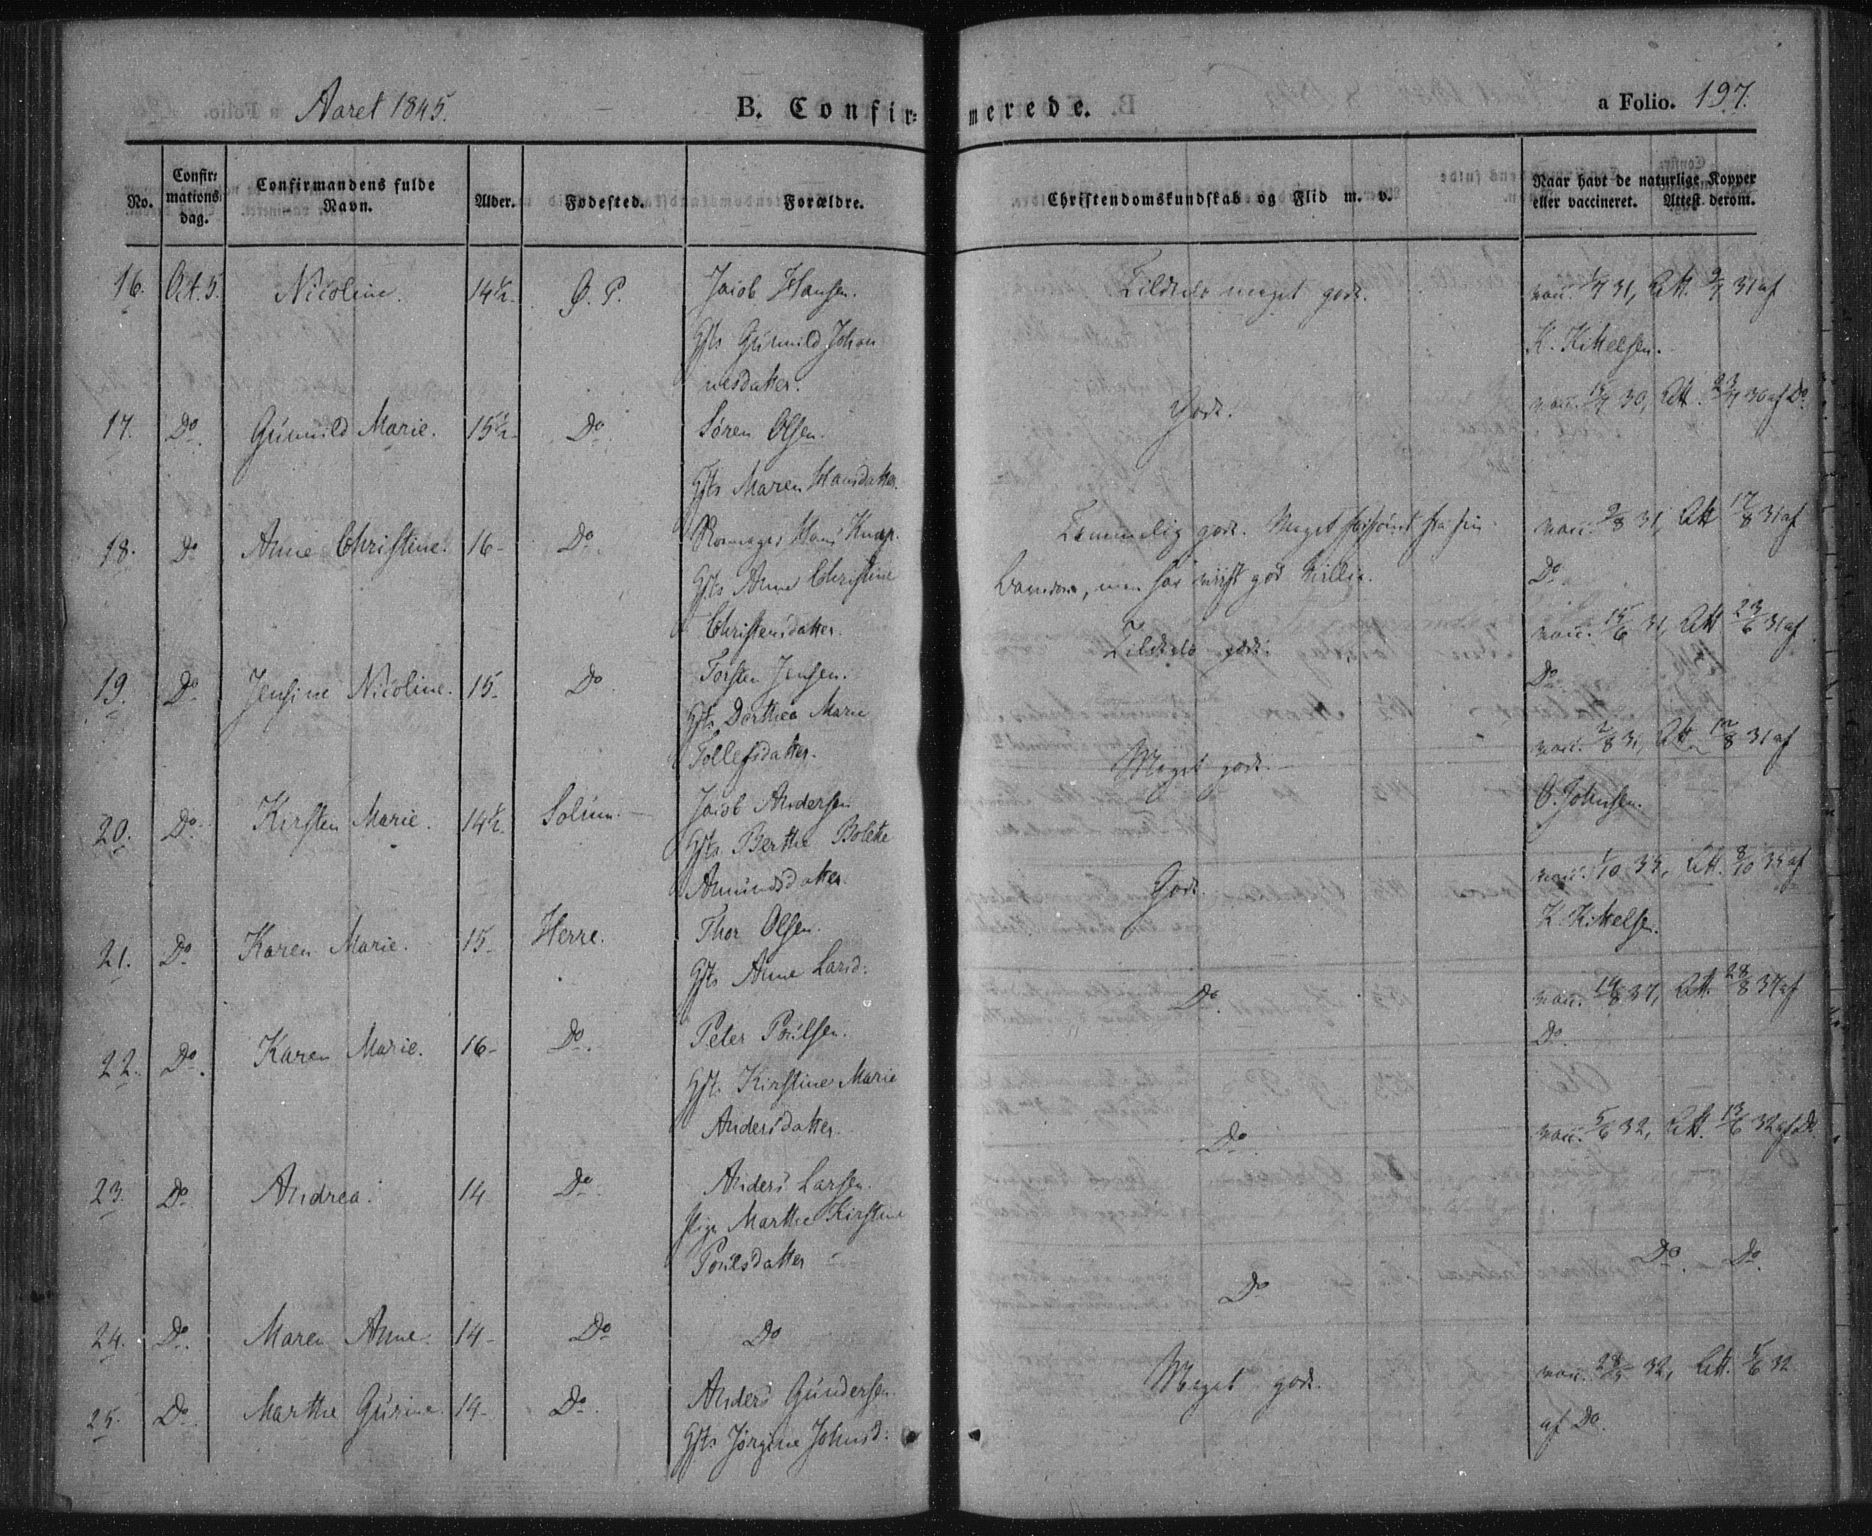 Aaret 1845. B. Confirmerede. a Folio. 197.
No. Confirmations dag. Confirmandens fulde Navn. Alder. Fødested. Forældre. Christendomskundskab og Flid m. v. Naar havt de naturlige Kopper eller vaccineret. Attest derom.
16. Oct. 5. Nicoline. 14½. G. P. Jacob Hansen. meget godt. vacc. 31, Att. 31 af
Gft Gunnild Johan K. Kittelsen.
nesdatter.
17. Do. Gunnild Marie. 15½. Do. Søren Olsen. Godt. vacc. 30, Att. 30 af Do.
Gft Maren Hansdatter.
18. Do Anne Christine. 16. Do. Hans Knap. Temmelig godt. Meget forsømt fra sin vacc. 9/8 31, Att 17/8 31 af
Gft Anne Christine Barndom, men har viist god Villie. Do
Christensdatter.
19. Do Jensine Nicoline. 15. Do Torsten Jensen. godt. vacc. 15/6 31, Att 23/6 31 af
Gft Dorthea Marie Do
Tollefsdatter.
20. Do. Kirsten Marie. 14½. Solum. Jacob Andersen Meget godt. vacc. 2/8 31, Att. 12/8 31 af
Gft. Berthe Bolette O. Johnsen.
Amundsdatter.
21. Do Karen Marie. 15. Herre. Thor Olsen. Godt. vacc. 1/10 35, Att. 8/10 35 af
Gft Anne Larsd: K. Kittelsen.
22. Do. Karen Marie. 16. Do. Peter Poulsen. Do. vacc. 19/8 37, Att. 28/8 37 af
Gft. Kirstine Marie Do.
Andersdatter.
23. Do Andrea. 14 Do. Anders Larsen. Do. vacc. 5/6 32, Att. 13/6 32 af Do
Pige Marthe Kirstine
Poulsdatter
24. Do. Maren Anne. 14. Do Do Do Do. Do.
25. Do. Marthe Gurine. 14. Do. Anders Gundersen. Meget godt. vacc. 28/5 32, Att. 5/6 32
Gft Jørgine Johnsd: af Do.